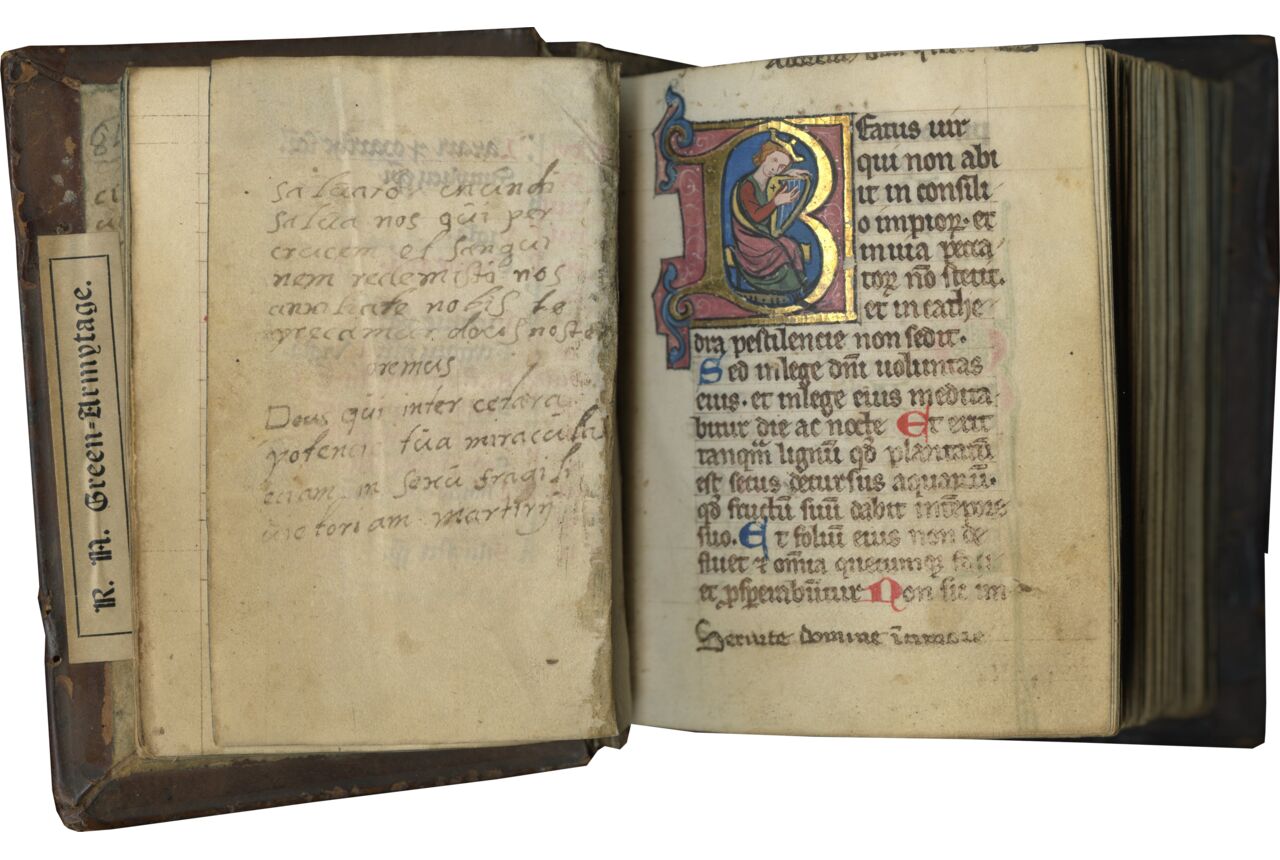 R. N. Green-Armytage.
saluator mundi
salua nos qui per
crucem et sangui
nem redemisti nos
auxiliare nobis te
precamur
oremus
Deus qui inter cetera
potencie tua miracula
etiam in sexu fragili
uictoriam martirij
Beatus uir
qui non abi
it in consili
o impioꝝ. et
in uia pecca
toꝝ nō stetit.
et in cathe
dra pestilencie non sedit.
Sed in lege dnī uoluntas
eius. et in lege eius medita
bitur die ac nocte Et erit
tanqm̄ lignū qd̄ plantatū
est secus decursus aquarū.
qd̄ fructū suū dabit in tempore
suo. Et foliū eius non de
fluet ⁊ om̄ia quecumqꝫ faci
et ꝓsperabūtur Non sic im
Seruite domine in timore